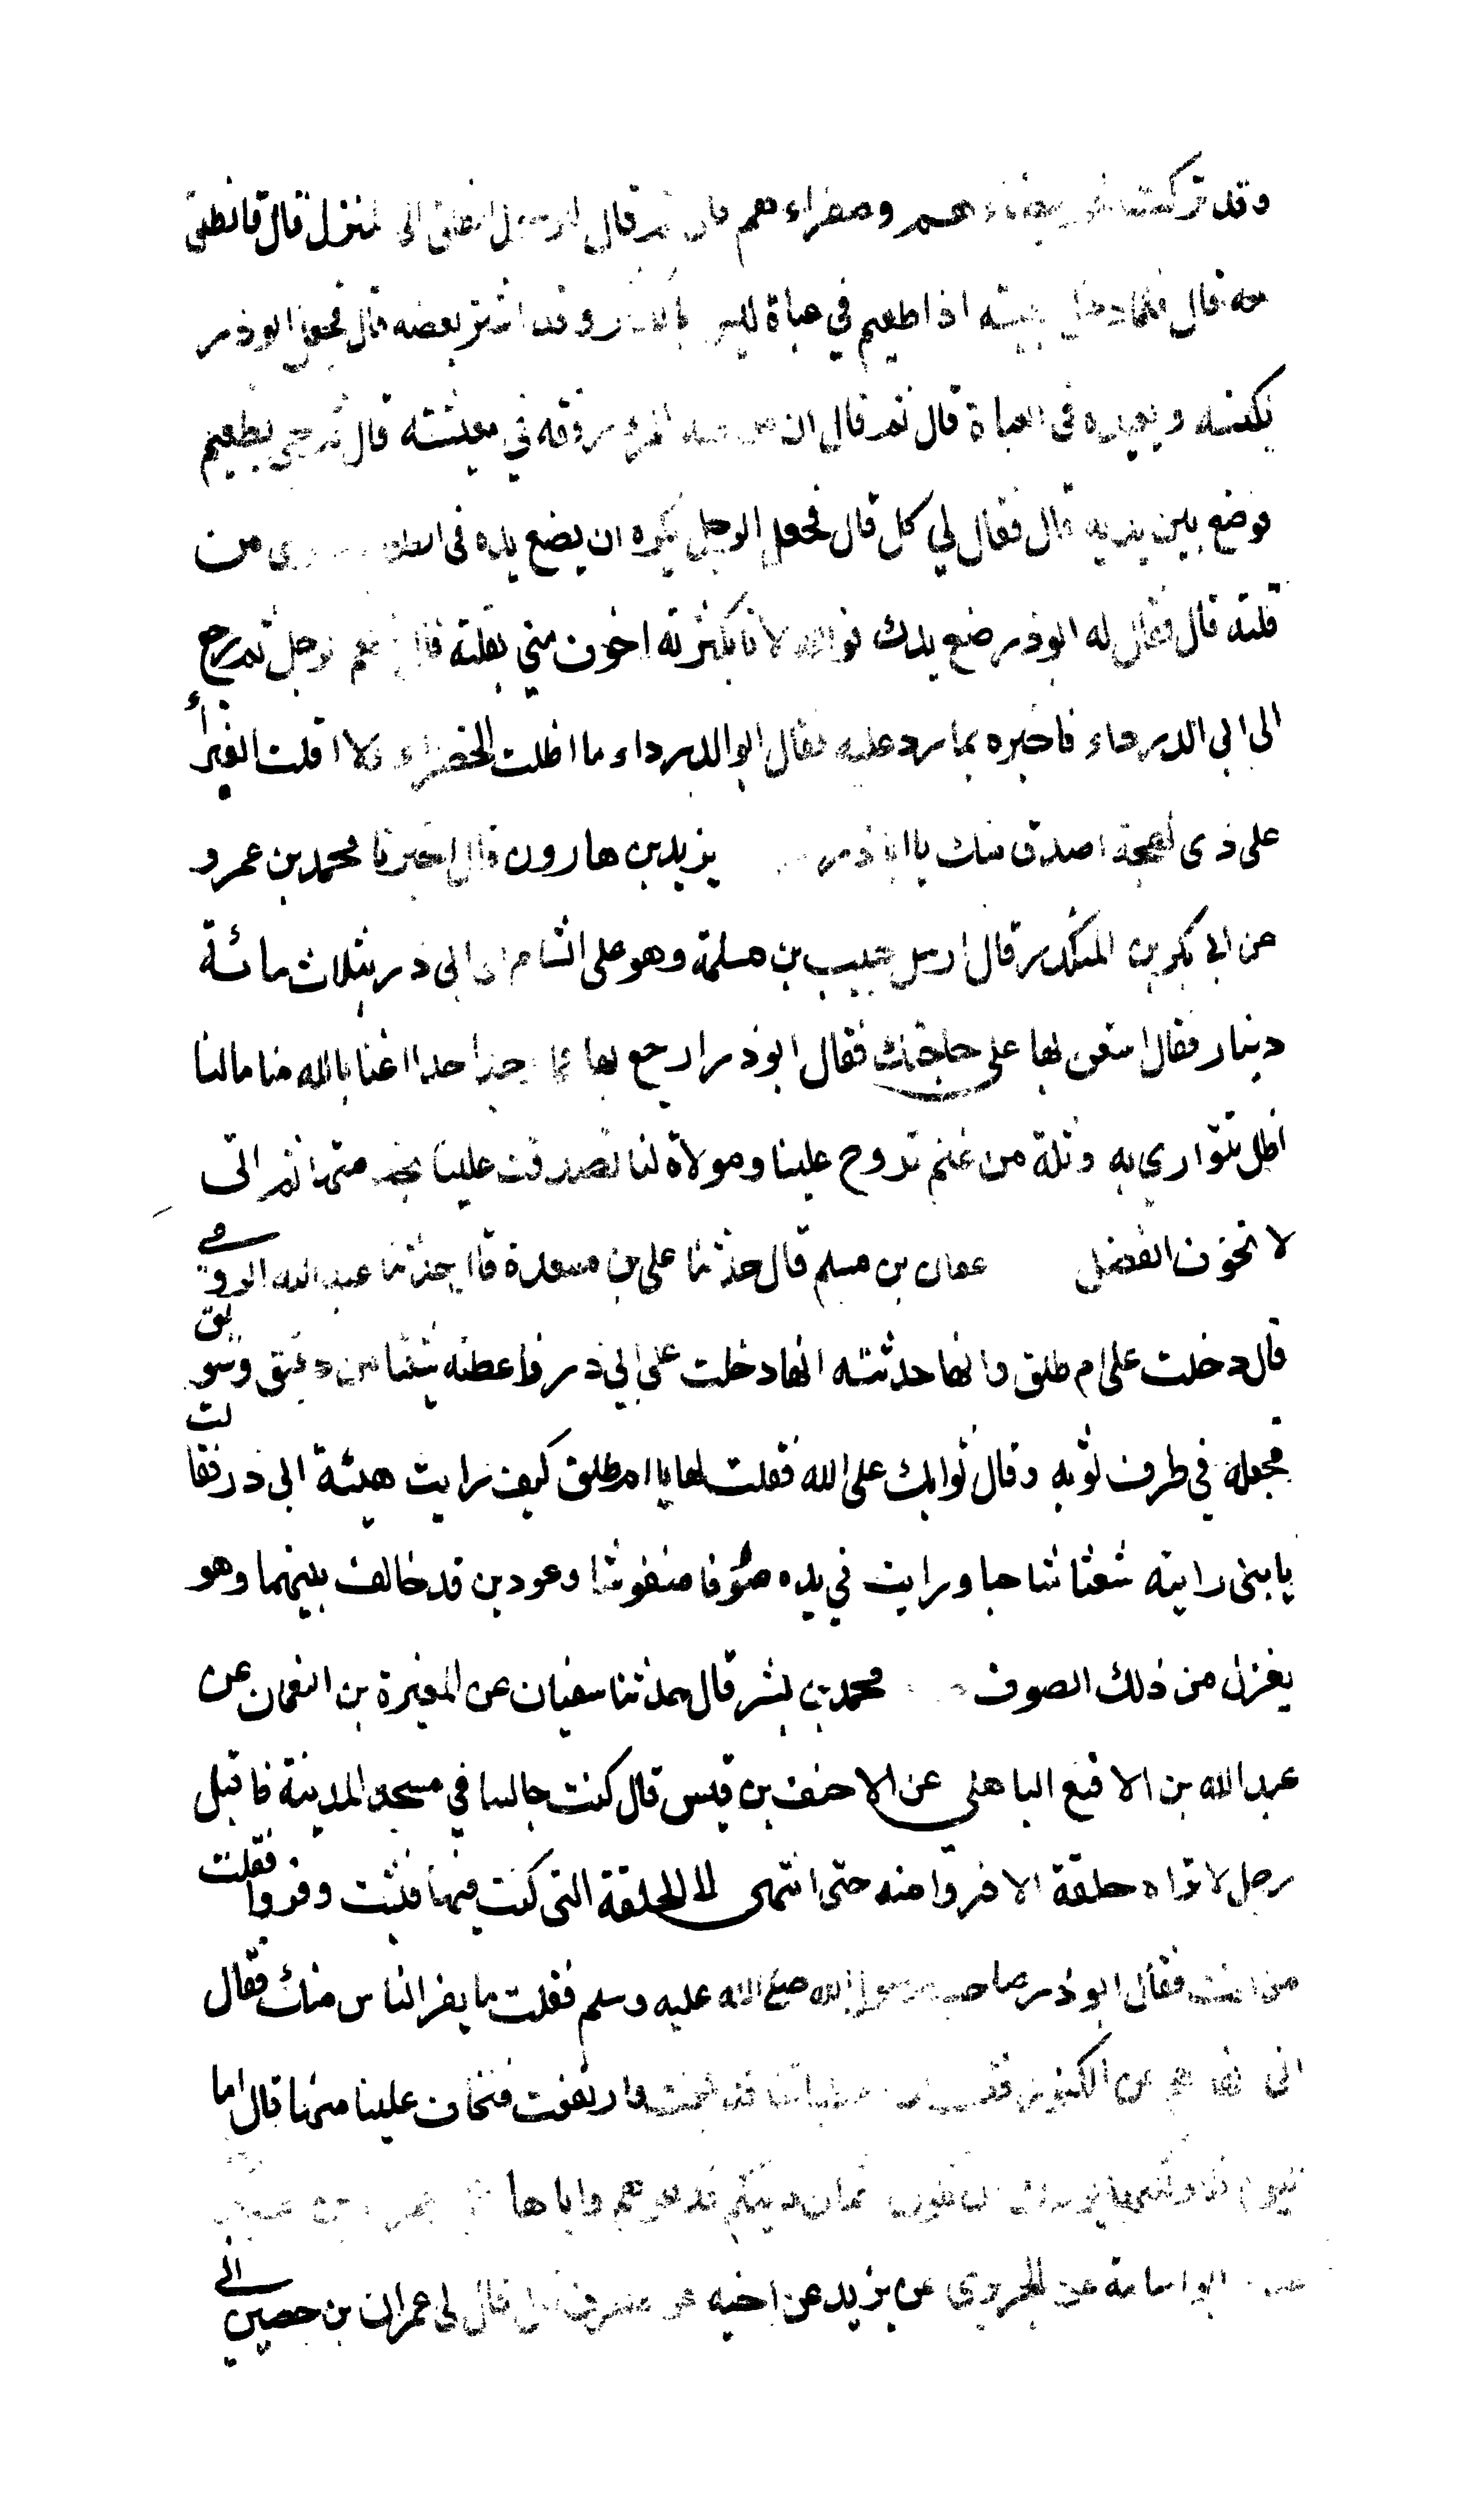 وقد تركت بيضاءهم وصفراءهم قال ثم قال انطلق الى المنزل قال فانطلق
معه قال فلما دخل بيته اذا طعيم في عباة ليس بالكثير وقد انتثر بعضه قال فجعل ابو ذر
يكنسه ويعيده في العباة قال ثم قال ان من فقه المرء رفقه في معيشته قال ثم جئ بطعيم
فوضع بين يديه قال فقال لي كل قال فجعل الرجل يكره ان يضع يده في الطعام من
قلته قال فقال له ابو ذر ضع يدك فوالله لانا بكثرته اخوف مني بقلته قال فطعم الرجل ثم رجع
الى ابي الدرداء فاخبره بما رد عليه فقال ابو الدرداء ما اظلت الخضراء ولا اقلت الغبرأ
على ذي لهجة اصدق منك يا ابا ذر يزيد بن هارون قال اخبرنا محمد بن عمرو
عن ابي بكر بن المنكدر قال ارسل حبيب بن مسلمة وهو على الشام الى ابي ذر بثلاث مائة
دينار فقال استعن بها على حاجتك فقال ابو ذر ارجع بها فما وجد احدا اغنا بالله منا مالنا
اظل نتوارى به وثلة من غنم تروح علينا ومولاة لنا تصدقت علينا بخدمتها ثم انى
لا تخوف الفضل عفان بن مسلم قال حدثنا علي بن مسعدة قال حدثنا عبد الله الرومي
قال دخلت على ام طلق وانها حدثته انها دخلت على ابي ذر فاعطته شيئا من دقيق وسويق
فجعله في طرف ثوبه وقال ثوابك على الله فقلت لها يا ام طلق كيف رايت هيئة ابي ذر فقالت
يا بني رايته شعثا شاحبا ورايت في يده صوفا منفوشا وعودين قد خالف بينهما وهو
يغزل من ذلك الصوف محمد بن بشر قال حدثنا سفيان عن المغيرة بن النعمان عن
عبد الله بن الاقنع الباهلي عن الاحنف بن قيس قال كنت جالسا في مسجد المدينة فاقبل
رجل لا تراه حلقة الا فروا منه حتى انتهى الى الحلقة التي كنت فيها فثبت وفروا فقلت
من انت فقال ابو ذر صاحب رسول الله صلى الله عليه وسلم فقلت ما يفر الناس منك فقال
انى انهاهم عن الكنوز قد بلغت وارتفعت فتخاف علينا منها قال اما
اليوم فلا اثمان دينكم فدعوهم واياها
ابو اسامة عن الجريري عن يزيد عن اخيه مطرف قال قال لي عمران بن حصين انى